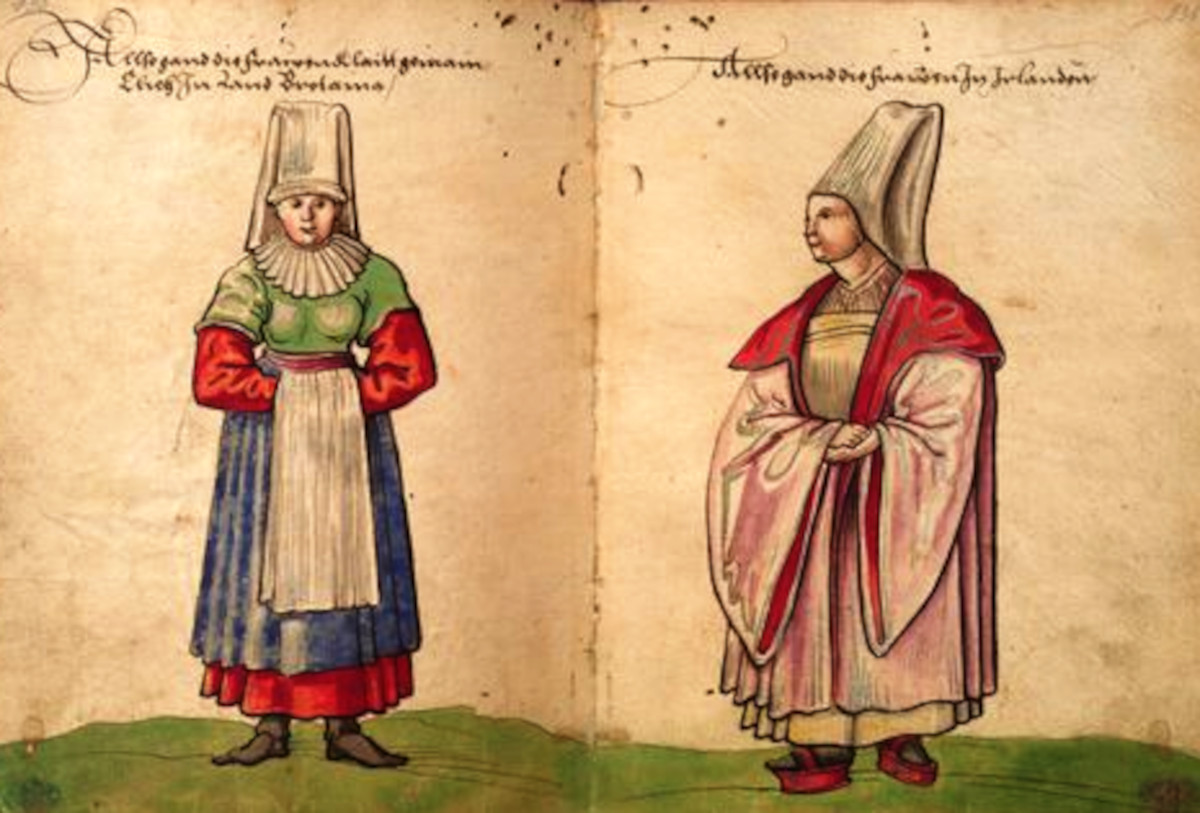 Allso gand die frauwen klaitt gemain
Elich In Land Brotania
Allso gand die frauwen In Irlanden